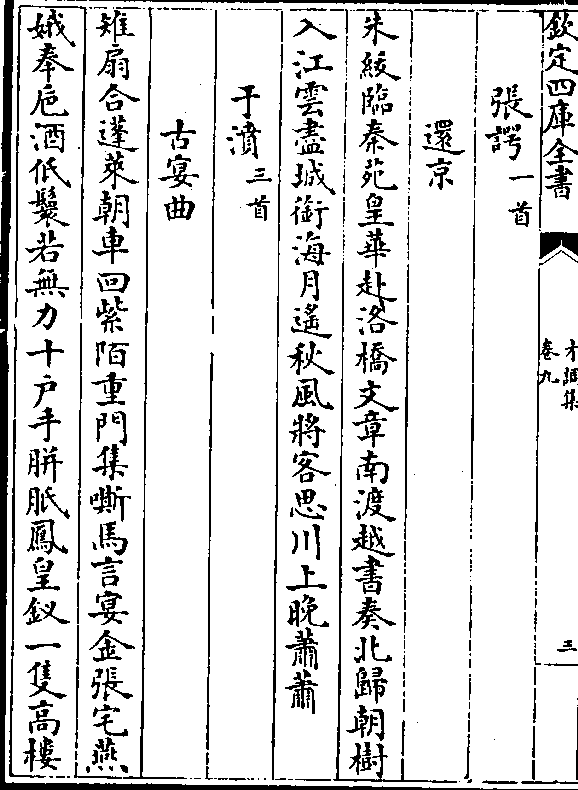 欽定四庫全書
才調集
卷九
三
張諤一首
還京
朱綬臨秦苑皇華赴洛橋文章南渡越書奏北歸朝樹
入江雲盡城銜海月遙秋風將客思川上晚蕭蕭
于濆三首
古宴曲
雉扇合蓬萊朝車回紫陌重門集嘶馬言宴金張宅燕
娥奉巵酒低鬟若無力十戶手胼胝鳳皇釵一隻高樓